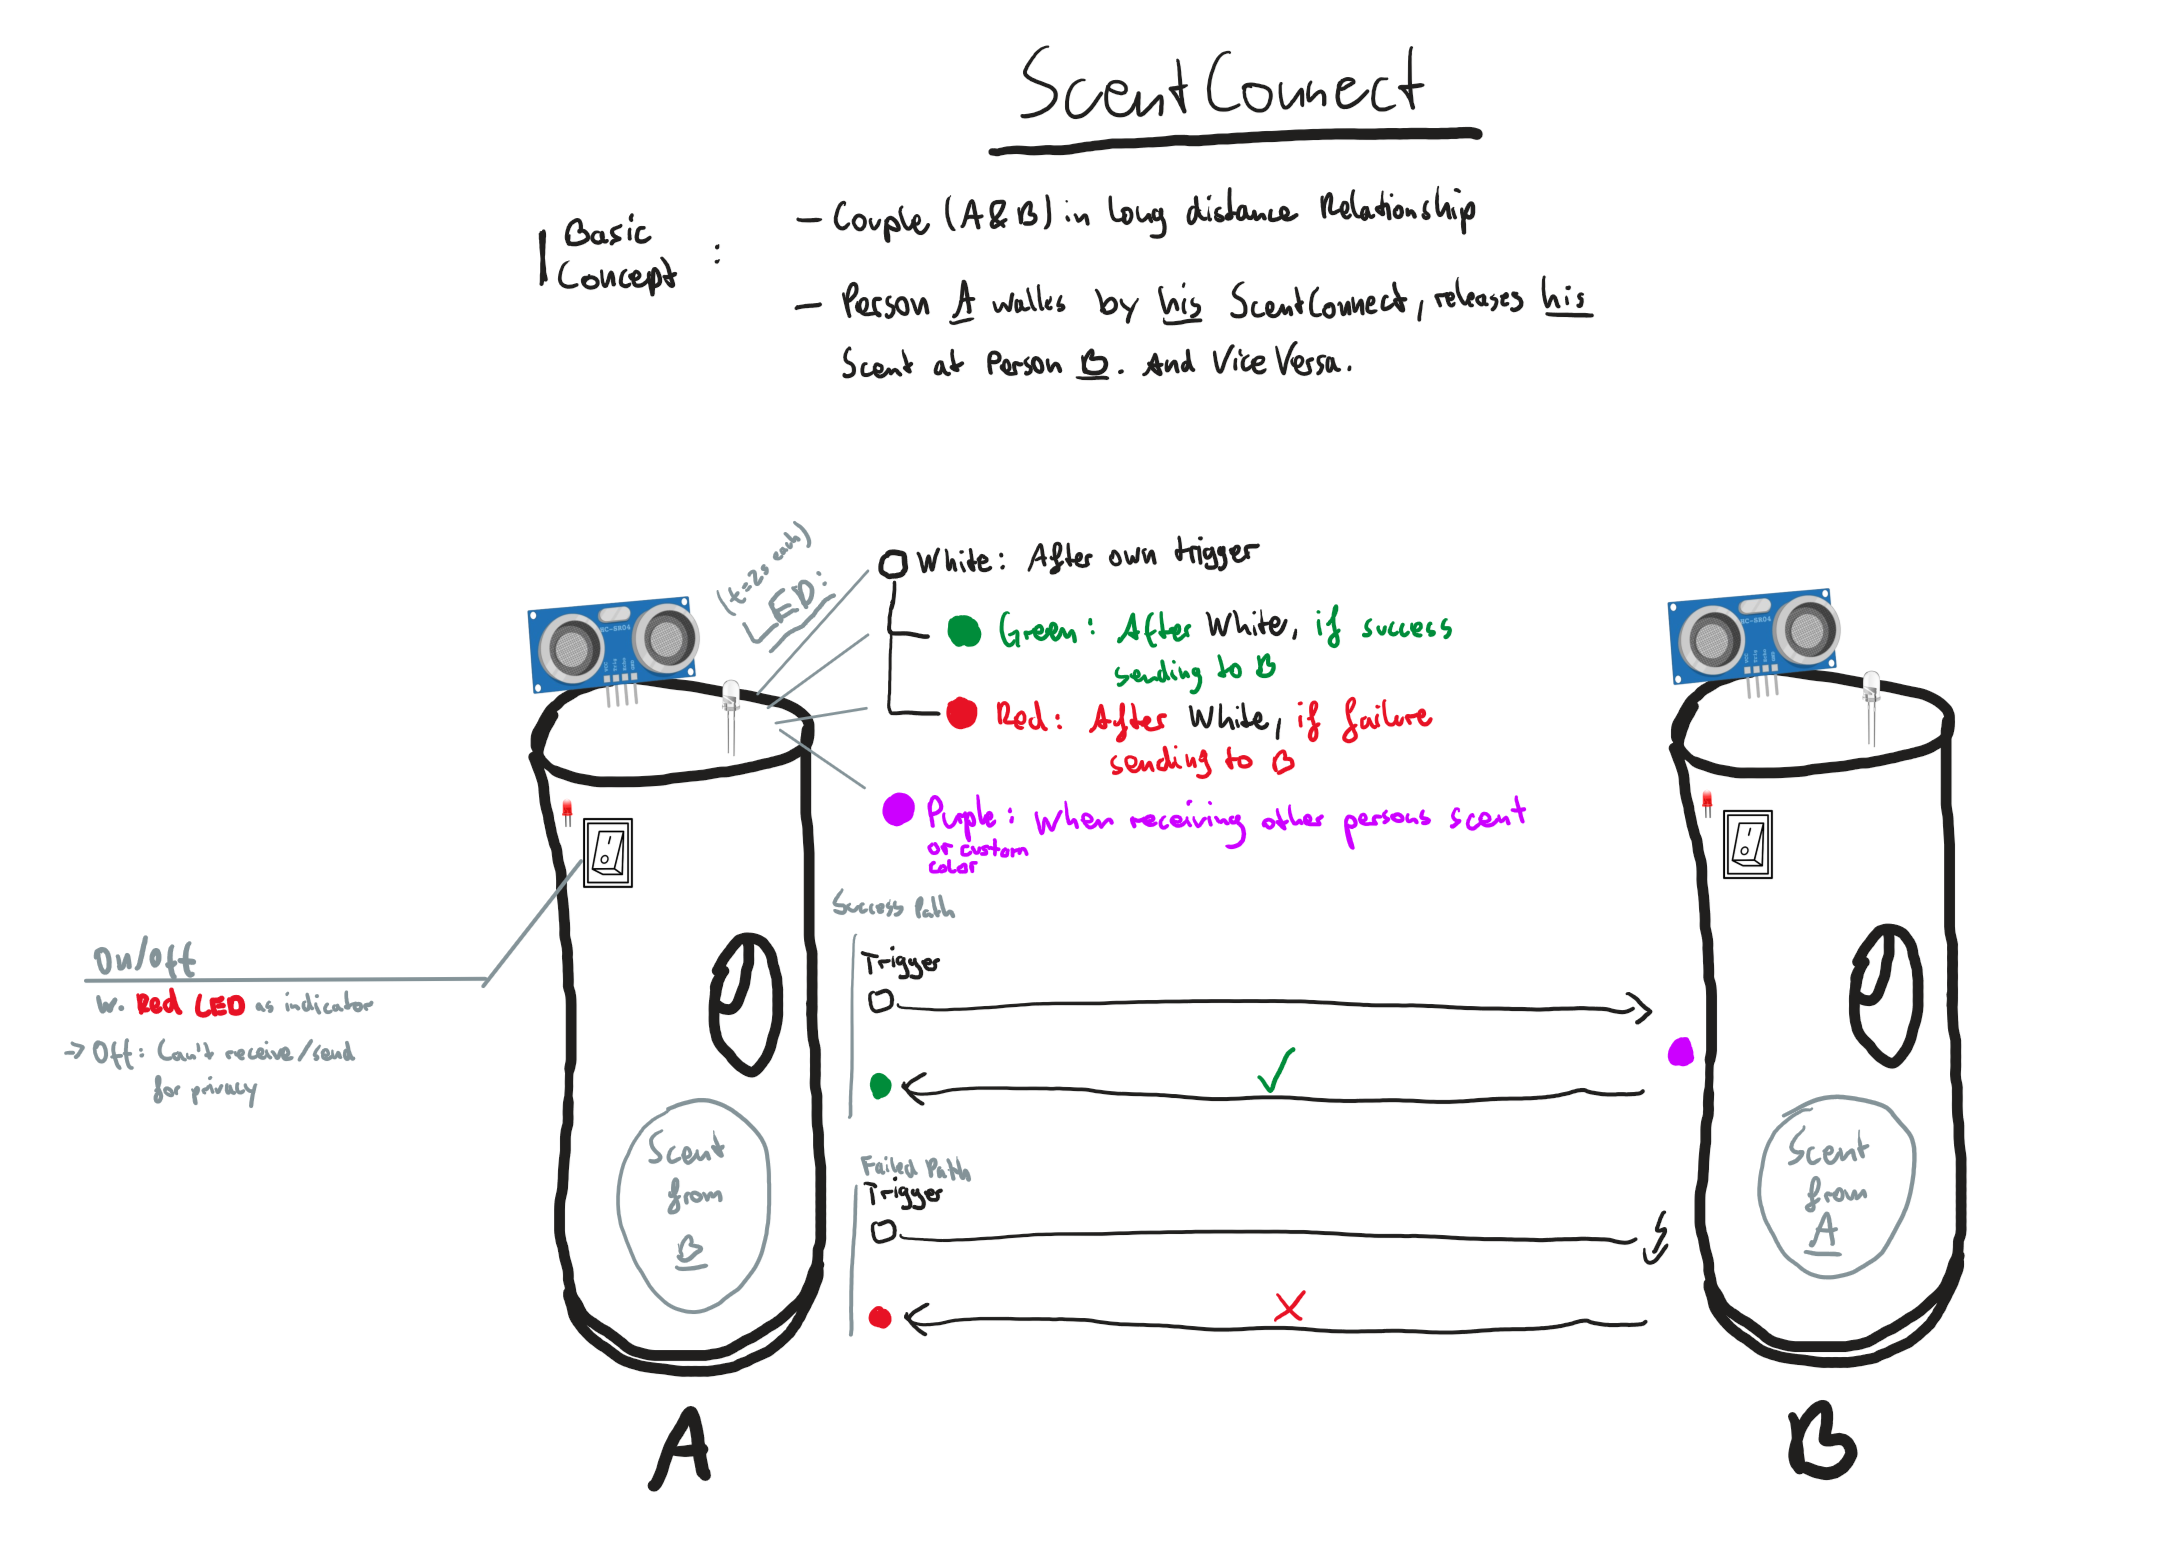 ScentConnect
Basic
Concept :
- Couple (A&B) in long distance Relationship
- Person A walks by his ScentConnect, releases his
Scent at Person B. And Vice Versa.
(t=2s each)
LED:
White: After own trigger
Green: After White, if success
sending to B
Red: After White, if failure
sending to B
Purple: When receiving other persons scent
or custom
color
HC-SR04
HC-SR04
On/Off
w. Red LED as indicator
-> Off: Can't receive/send
for privacy
Success Path
Trigger
Failed Path
Trigger
Scent
from
B
Scent
from
A
A
B